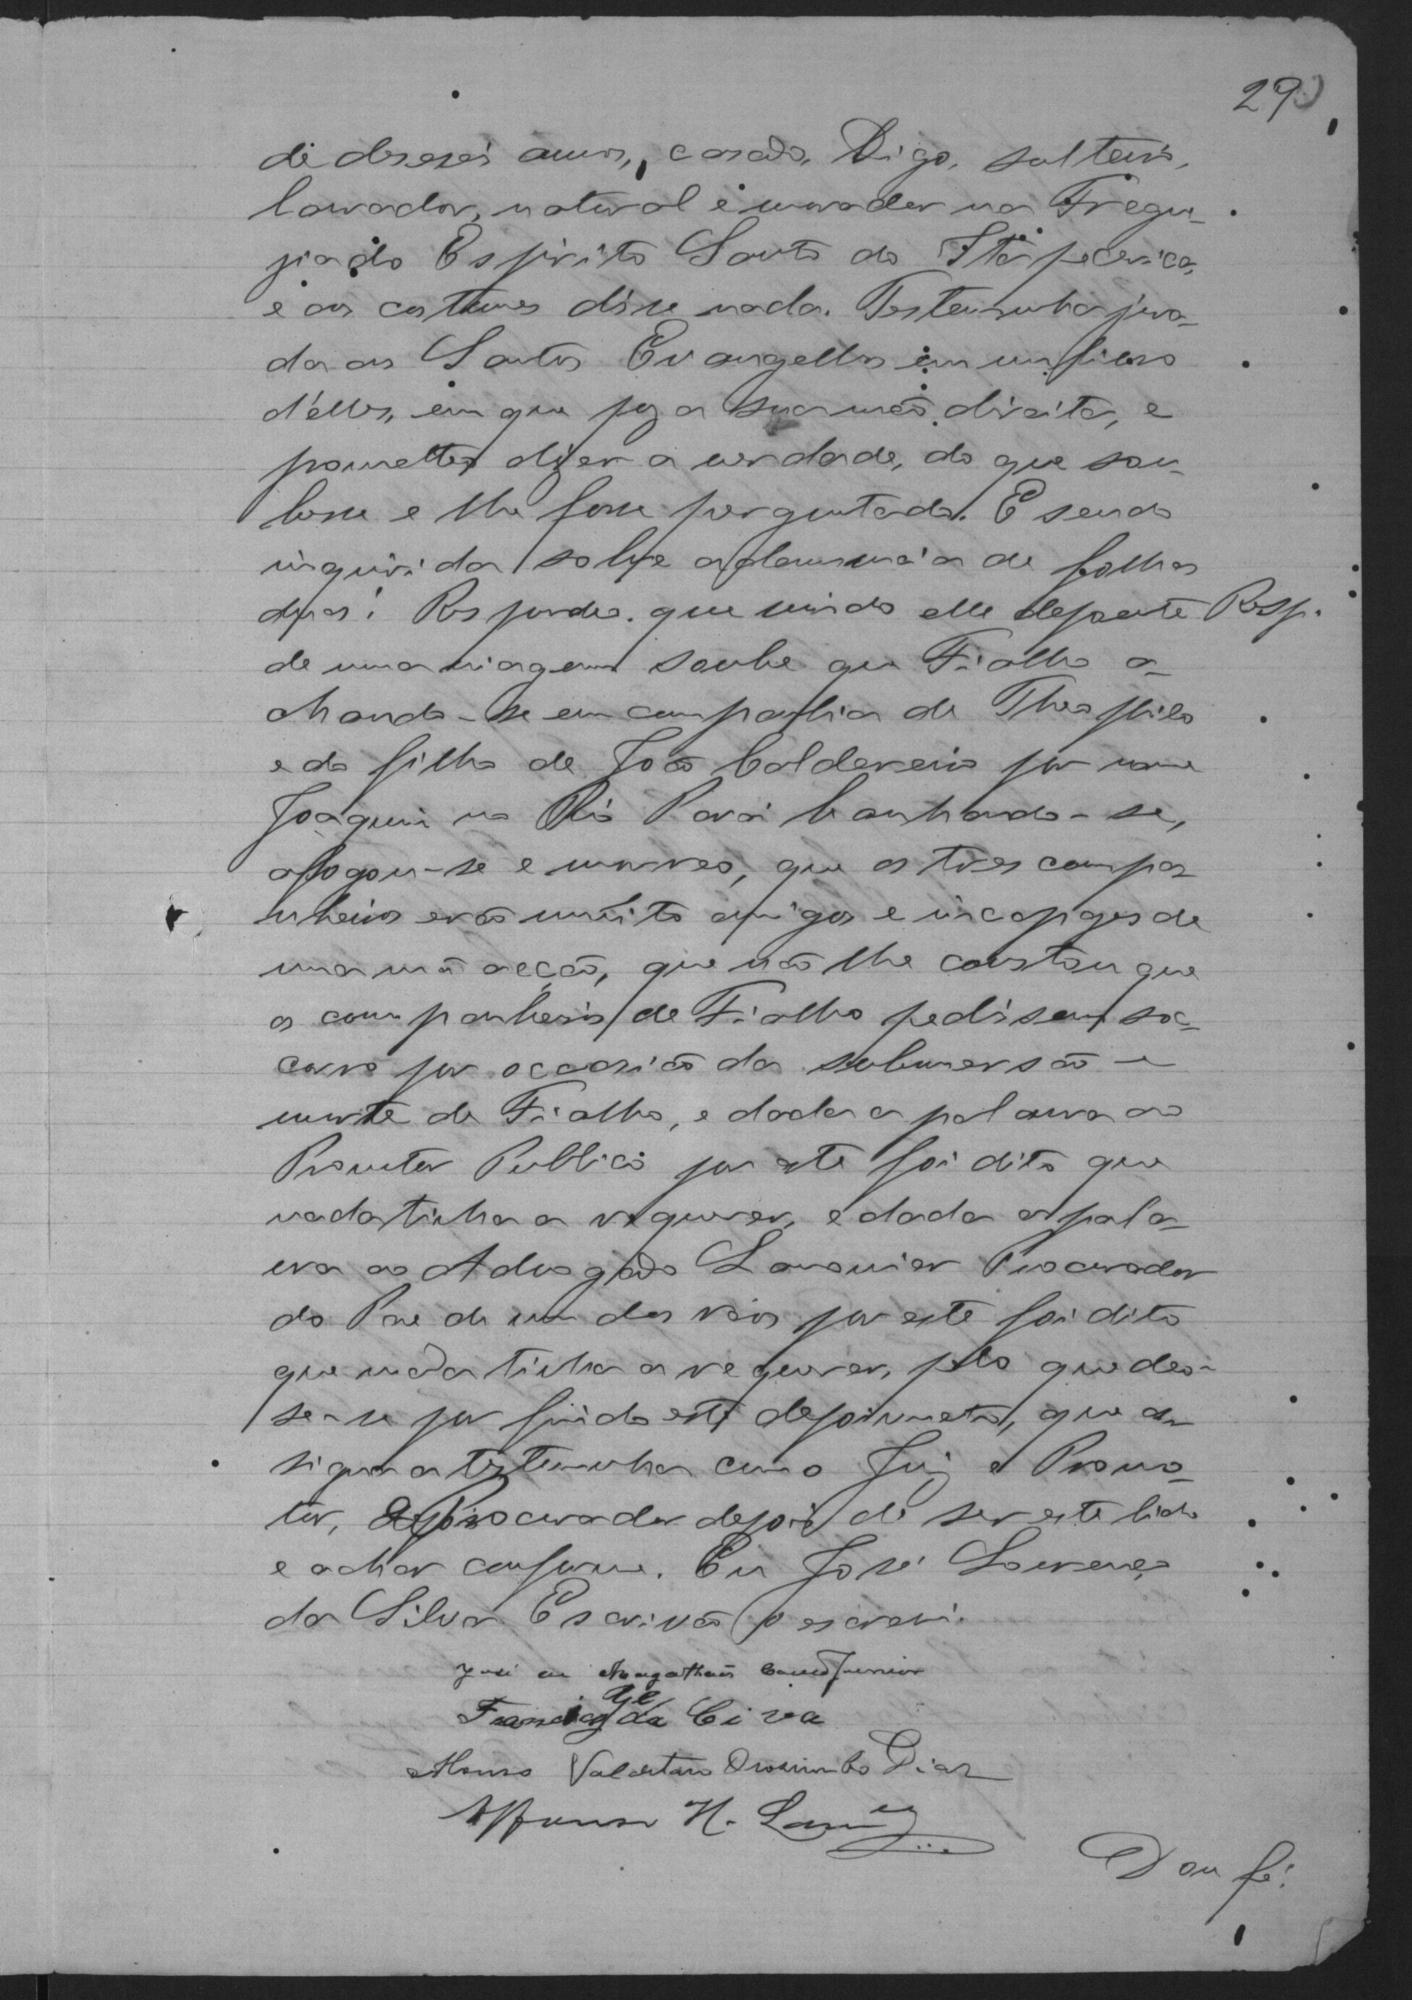 29
de deseseis annos, casado, Digo, solteiro,
lavrador, natural e morador na Fregue-
zia do Espirito Santo do Itapecerica,
e aos costumes disse nada. Testemunha jura-
da aos Santos Evangelhos em um livro
d'elles, em que poz a sua mão direita, e
prometteo dizer a verdade, do que sou-
besse e lhe fosse perguntado. E sendo
inquirida sobre a denuncia de folhas
duas! Respondeo. que vindo elle depoente Resp.
de uma viagem soube que Fialho a-
chando-se em companhia de Theophilo
e do filho de João Caldereiro por nome
Joaquim no Rio Pará banhando-se,
afogou-se e morreo, que os tres compa
nheiros erão muito amigos e incapazes de
uma má acção, que não lhe constou que
os companheiros de Fialho pedissem soc-
corro por occasião da submersão e
morte de Fialho, e dada a palavra ao
Promotor Publico por este foi dito que
nada tinha a requerer, e dada a pala-
vra ao Advogado Lamounier Procurador
do Pae de um dos reos por este foi dito
que nada tinha a requerer, pelo que deo-
se-se por findo este depoimento, que as-
signa a testemunha com o Juiz e Promo-
tor, e Procurador depois de ser este lido
e achar conforme. Eu José Lourenço
da Silva Escrivão o escrevi.
José de Magalhães Junior
Francisco da Civa
Dias
Affonso H. Lam
Dou fé!